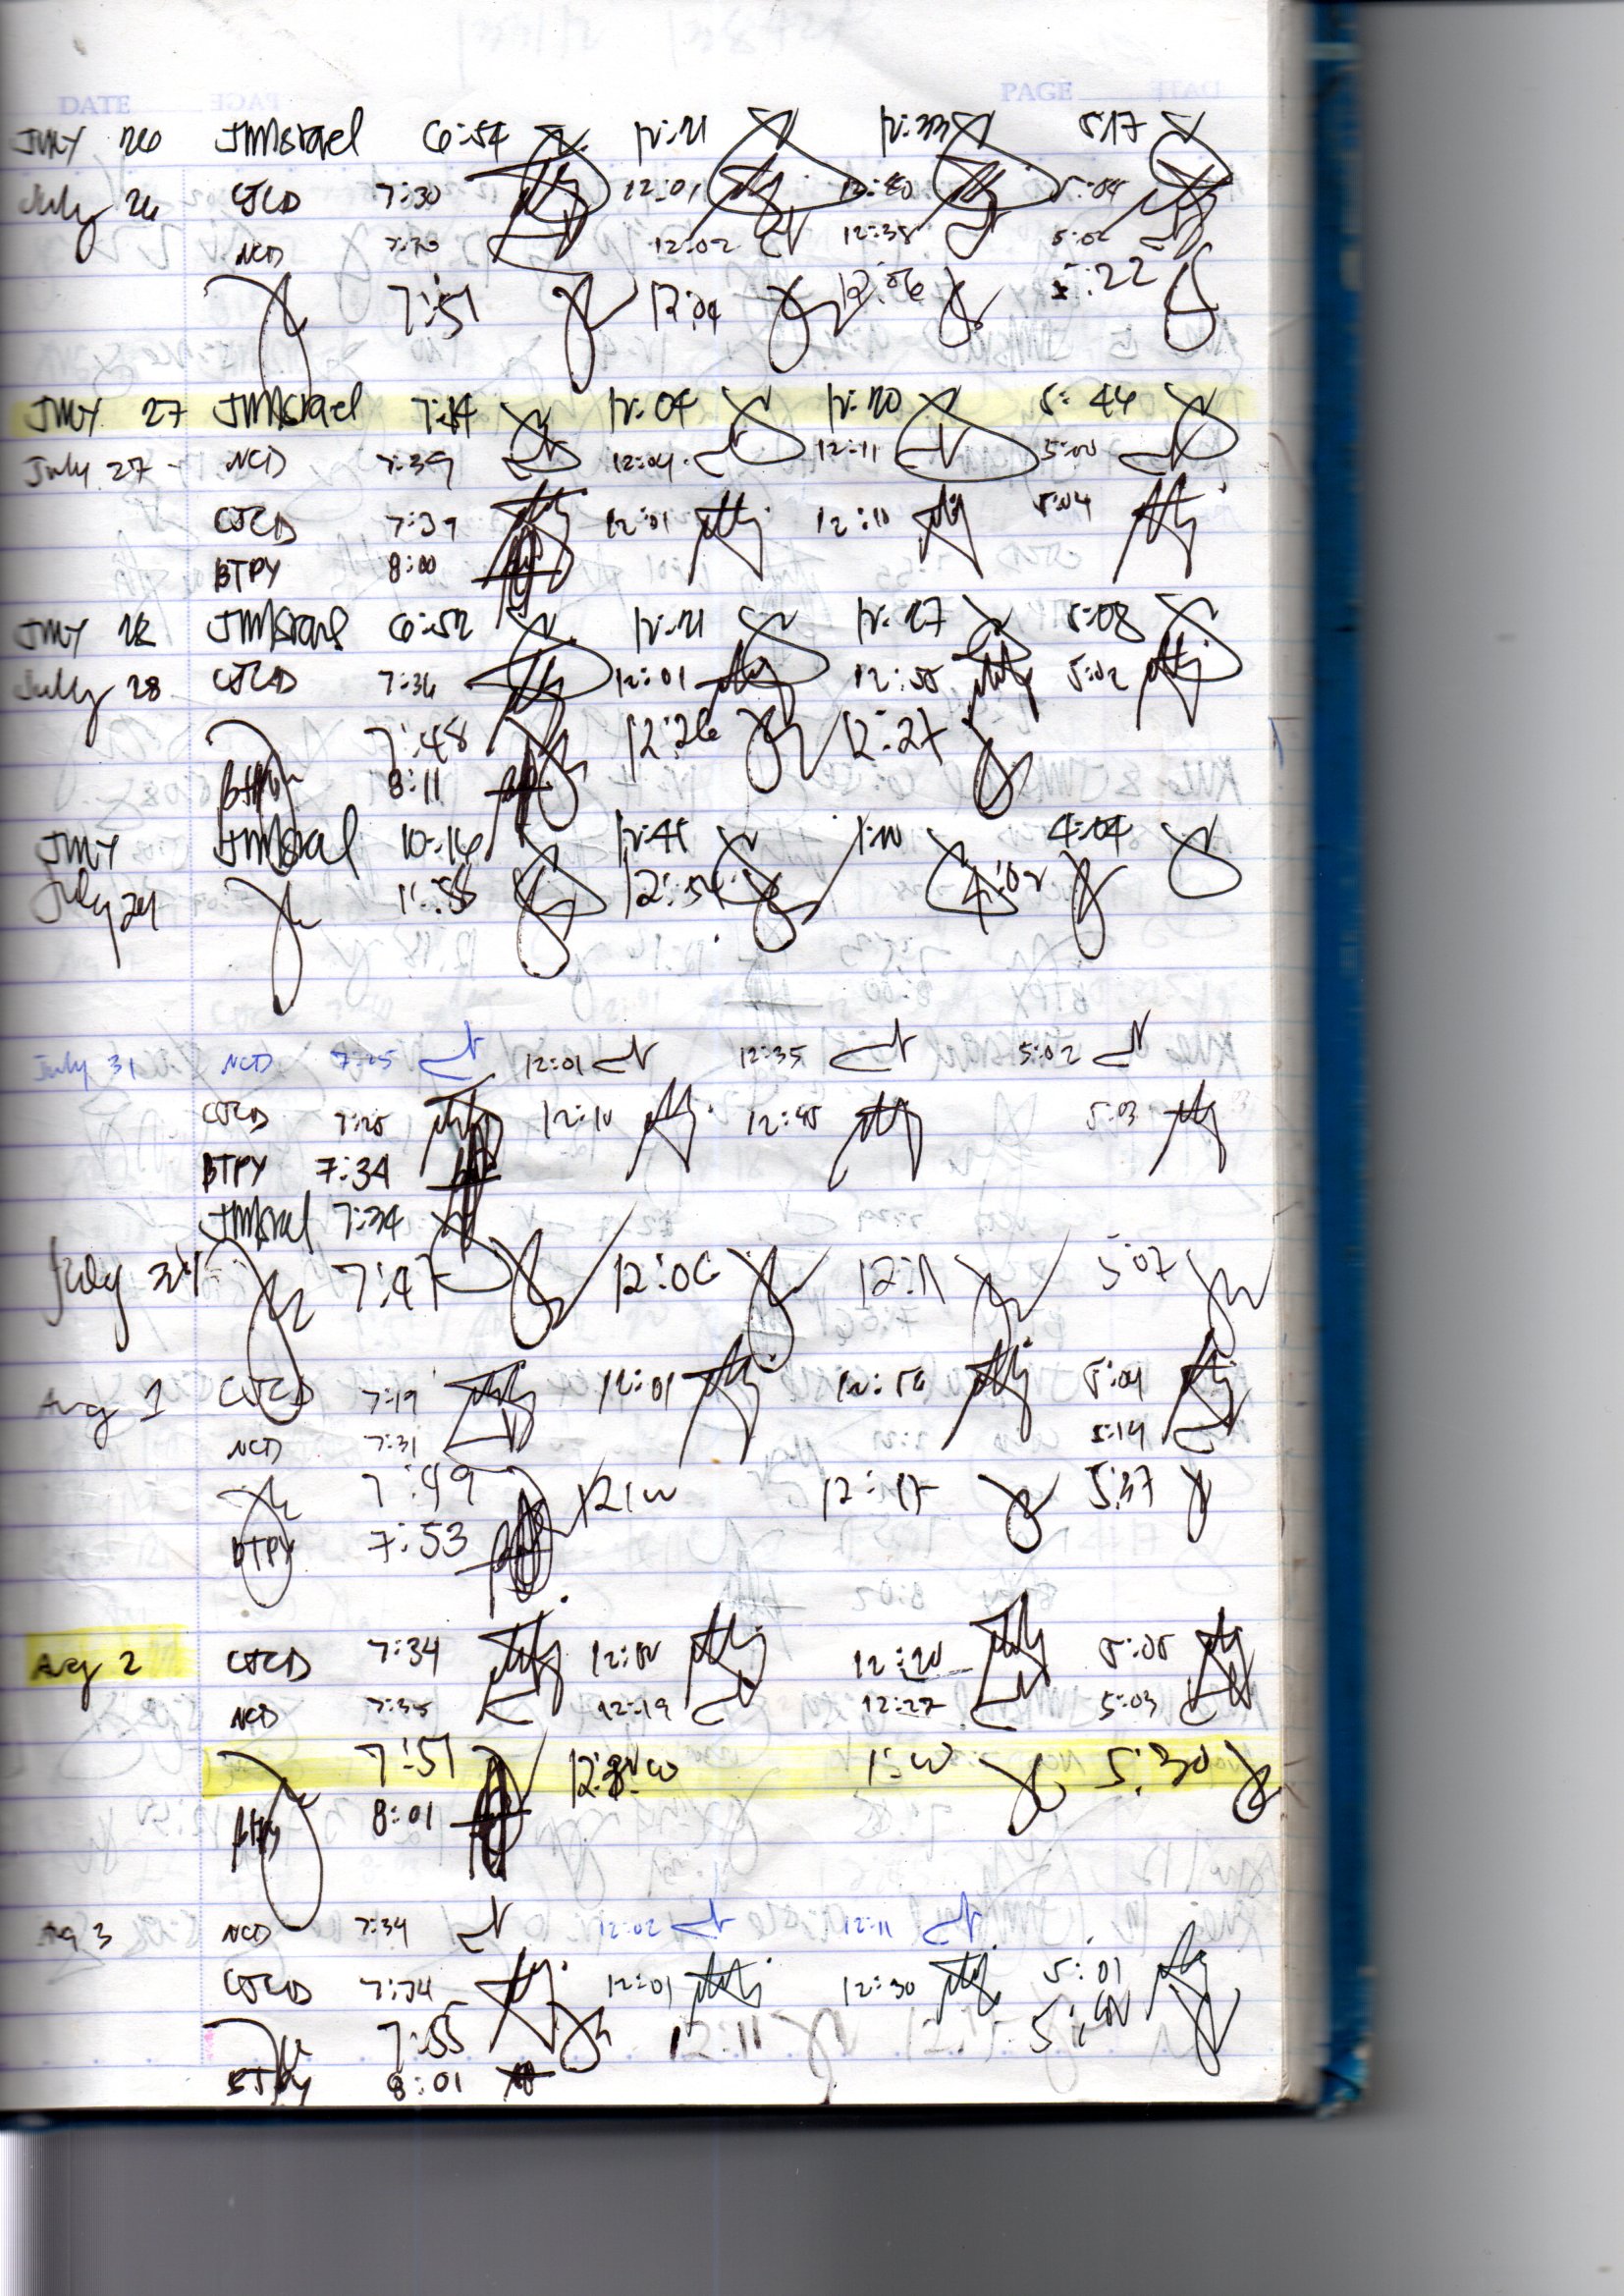 DATE PAGE
July 26 JMIsrael 6:54 12:21 12:33 5:17
July 26 CJCD 7:30 12:01 5:04
NCD 7:30 12:02 12:38 5:02
7:51 12:04 12:06 5:22
July 27 JMIsrael 7:14 12:04 12:20 5:46
July 27 NCD 7:39 12:04 12:11 5:00
CJCD 7:39 12:01 12:10 5:04
BTPY 8:00
July 28 JMIsrael 6:52 12:21 12:27 5:08
July 28 CJCD 7:36 12:01 5:02
7:48 12:26 12:27
8:11
July JMIsrael 10:16 12:45 4:04
July 12:54 4:02
July 31 NCD 7:25 12:01 12:35 5:02
CJCD 7:25 12:10 12:45 5:03
BTPY 7:34
JMIsrael 7:34
July 7:47 12:06 12:11 5:07
Aug 1 CJCD 7:19 12:01 5:04
NCD 7:31 5:14
7:49 12:17 5:37
BTPY 7:53
Aug 2 CJCD 7:34 12:20 5:05
NCD 7:35 12:19 12:27 5:03
7:51 5:30
8:01
Aug 3 NCD 7:34 12:02 12:11
CJCD 7:34 12:01 12:30 5:01
7:55 12:11
BTPY 8:01